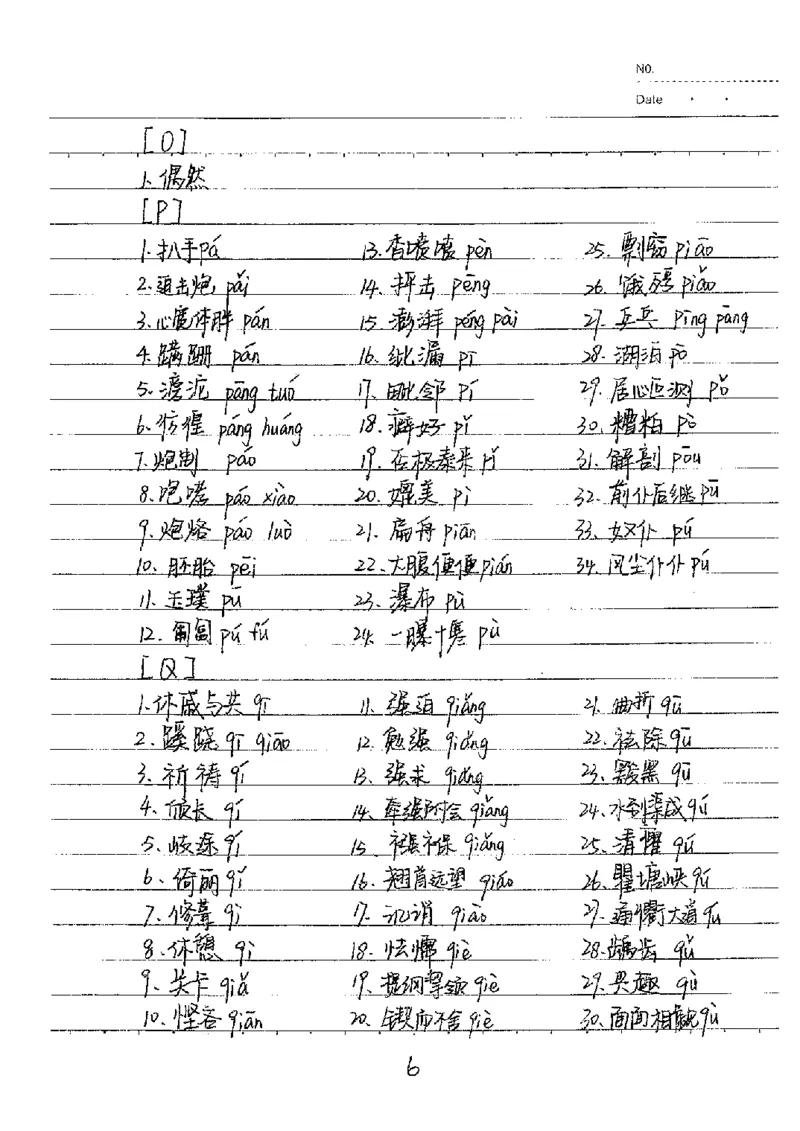 NO.
Date
[O]
1. 偶然
[P]
1. 扒手 pá 13. 香喷喷 pèn 25. 剽窃 piāo
2. 迫击炮 pǎi 14. 抨击 pēng 26. 饿殍 piǎo
3. 心广体胖 pán 15. 澎湃 péng pài 27. 乒乓 pīng pāng
4. 蹒跚 pán 16. 纰漏 pī 28. 湖泊 pō
5. 滂沱 pāng tuó 17. 毗邻 pí 29. 居心叵测 pǒ
6. 彷徨 páng huáng 18. 癖好 pǐ 30. 糟粕 pò
7. 炮制 páo 19. 否极泰来 pǐ 31. 解剖 pōu
8. 咆哮 páo xiào 20. 媲美 pì 32. 前仆后继 pū
9. 炮烙 páo luò 21. 扁舟 piān 33. 奴仆 pú
10. 胚胎 pēi 22. 大腹便便 pián 34. 风尘仆仆 pú
11. 玉璞 pú 23. 瀑布 pù
12. 匍匐 pú fú 24. 一曝十寒 pù
[Q]
1. 休戚与共 qī 11. 强迫 qiǎng 21. 曲折 qū
2. 蹊跷 qī qiāo 12. 勉强 qiǎng 22. 祛除 qū
3. 祈祷 qí 13. 强求 qiǎng 23. 黢黑 qū
4. 颀长 qí 14. 牵强附会 qiǎng 24. 水到渠成 qú
5. 歧途 qí 15. 襁褓 qiǎng 25. 清癯 qú
6. 绮丽 qǐ 16. 翘首远望 qiáo 26. 瞿塘峡 qú
7. 修葺 qì 17. 讥诮 qiào 27. 通衢大道 qú
8. 休憩 qì 18. 怯懦 qiè 28. 龋齿 qǔ
9. 关卡 qiǎ 19. 提纲挈领 qiè 29. 兴趣 qù
10. 悭吝 qiān 20. 锲而不舍 qiè 30. 面面相觑 qù
6